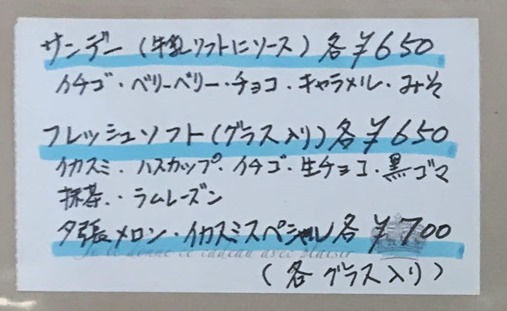 サンデー(牛乳ソフトにソース)各¥650
イチゴ・ベリーベリー・チョコ・キャラメル・みそ
フレッシュソフト(グラス入り)各¥650
イカスミ・ハスカップ・イチゴ・生チョコ・黒ゴマ
抹茶・ラムレーズン
夕張メロン・イカスミスペシャル各¥700
(各グラス入り)